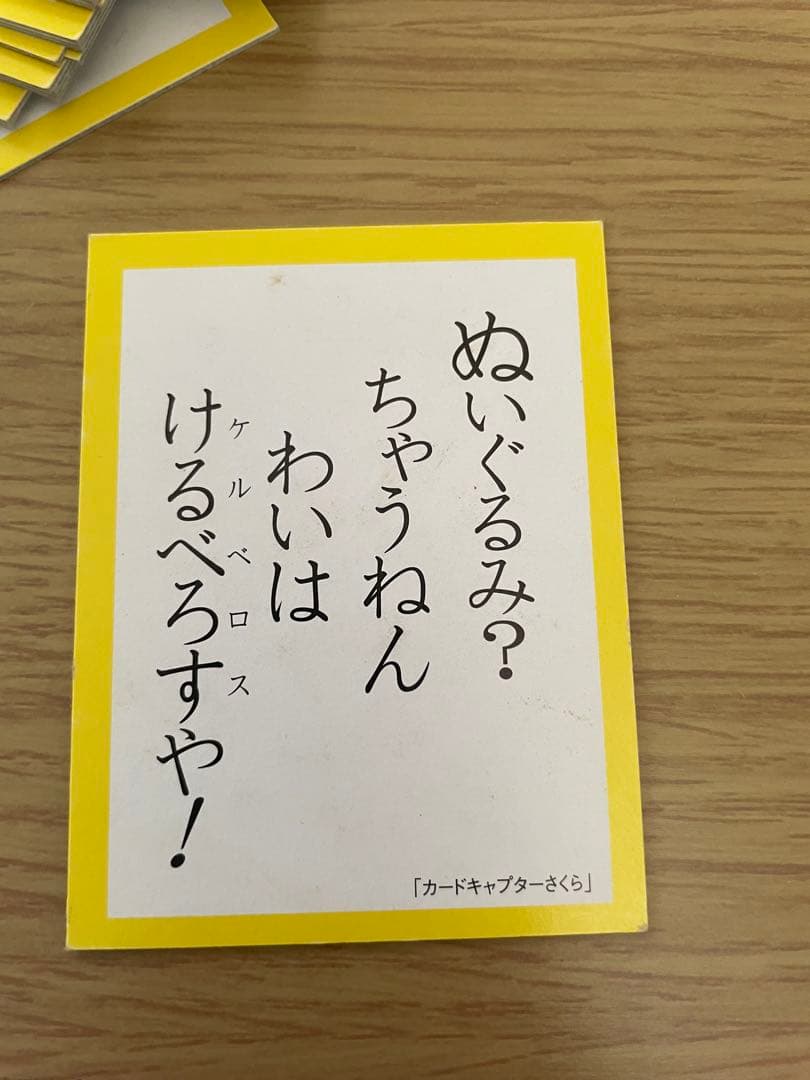 ぬいぐるみ？
ちゃうねん
わいは
けるべろすや！
ケルベロス
「カードキャプターさくら」